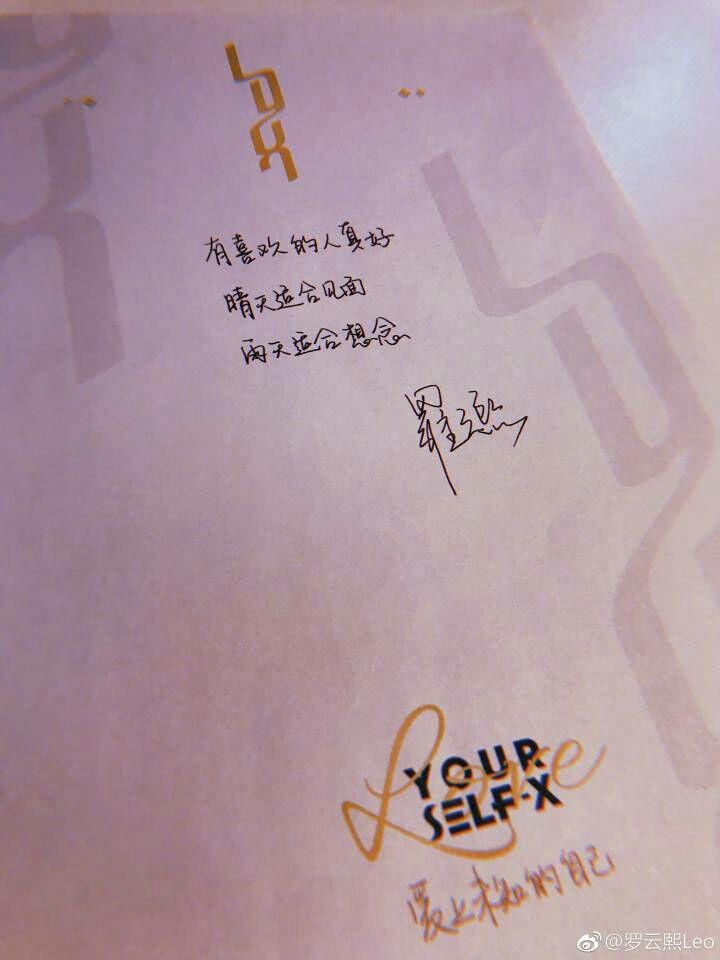 LYX
有喜欢的人真好
晴天适合见面
雨天适合想念
罗云熙
Love
YOUR
SELF-X
爱上未知的自己
@罗云熙Leo